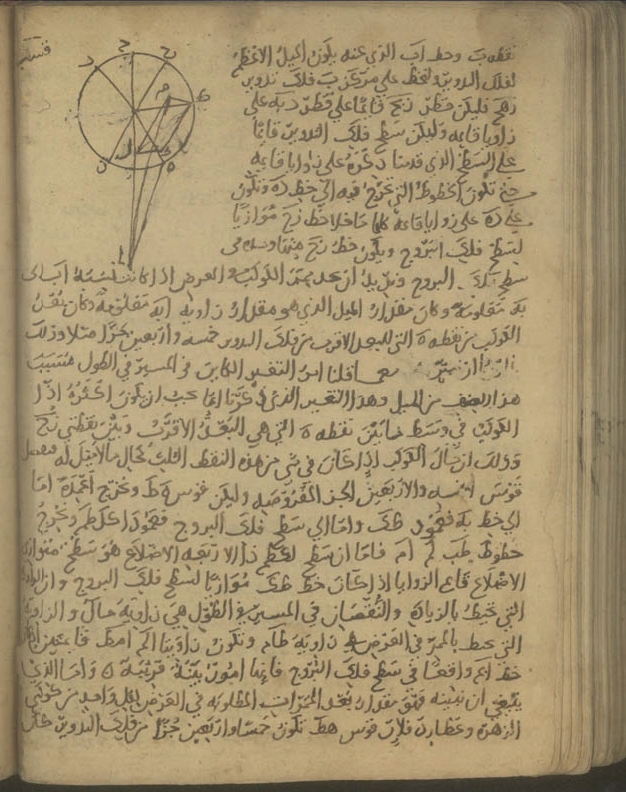 نقطه ب وخط اب الذي عنه يكون الميل الاعظم
لفلك التدوير ولنخط على مركز ب فلك تدوير
زحه فليكن قطر زبح قائما على قطر دبه على
زوايا قائمه وليكن سطح فلك التدوير قائما
على السطح الذي قدمنا ذكره على زوايا قائمه
حتى تكون الخطوط التي تخرج فيه الى خط ده وتكون
على ده على زوايا قائمه كلها ما خلا خط زح موازيا
لسطح فلك البروج ويكون خط زح
سطح فلك البروج ونريد ان نجد ممر الكوكب في العرض اذا كانت نسبه اب الى
به معلومه وكان مقدار الميل الذي هو مقدار زاويه ابه معلومه وكان بعد
الكوكب من نقطه ه التي للبعد الاقرب من فلك التدوير خمسه واربعين جزا مثلا وذلك
قلنا ان التغير الكاين في المسير في الطول بسبب
هذا الميل وهذا التغير الذي ذكرنا انما يجب ان يكون اكثره اذا كان
الكوكب في وسط ما بين نقطه ه التي هي البعد الاقرب وبين نقطتي زح
وذلك ان حال الكوكب اذا كان في شي من هذه النقط الثلث كحال ما لا ميل له فنفصل
قوس الخمسه والاربعين الجز المفروضه وليكن قوس هط ونخرج اعمده اما
الى خط به فعمود طك واما الى سطح فلك البروج فعمودا كل طم ونخرج
خطوط طب لم ام فاما ان سطح لكطم ذا الاربعه الاضلاع هو سطح متوازي
الاضلاع قائم الزوايا اذ كان خط طك موازيا لسطح فلك البروج وان الزاويه
التي تحيط بالزياده والنقصان في المسير في الطول هي زاويه لام والزاويه
التي تحيط بالممر في العرض هي زاويه طام وتكون زاويتا الم امط قائمتين
خط ام واقعا في سطح فلك البروج فانها امور بينه قريبه واما الذي
ينبغي ان نبينه فهو مقدار بعد الممرات المطلوبه في العرض لكل واحد من كوكبي
الزهره وعطارد فلان قوس هط تكون خمسا واربعين جزا من فلك التدوير